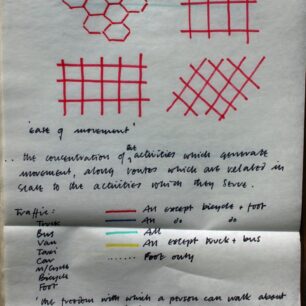 'Ease of movement'
.. the concentration of the activities which generate
movement, along routes which are related in
scale to the activities which they serve.
Traffic: All except bicycle + foot
Truck All do do
Bus All
Van All except truck + bus
Taxi Foot only
Car
M/Cycle
Bicycle
Foot
'the freedom with which a person can walk about